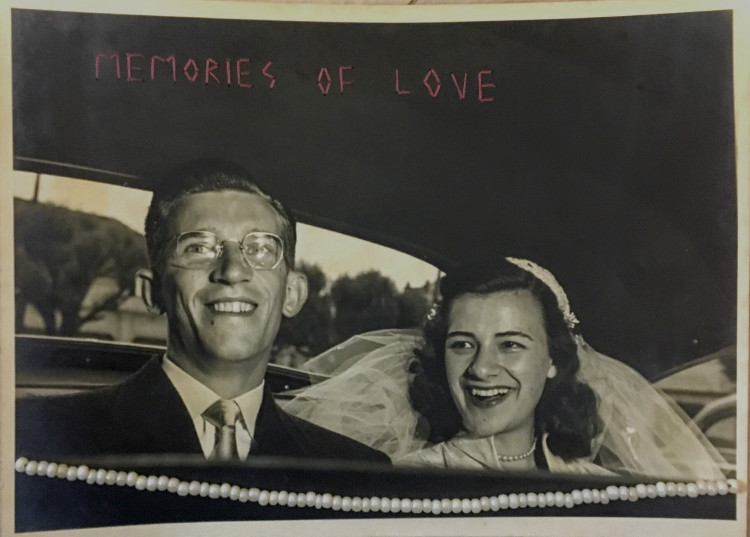 MEMORIES OF LOVE